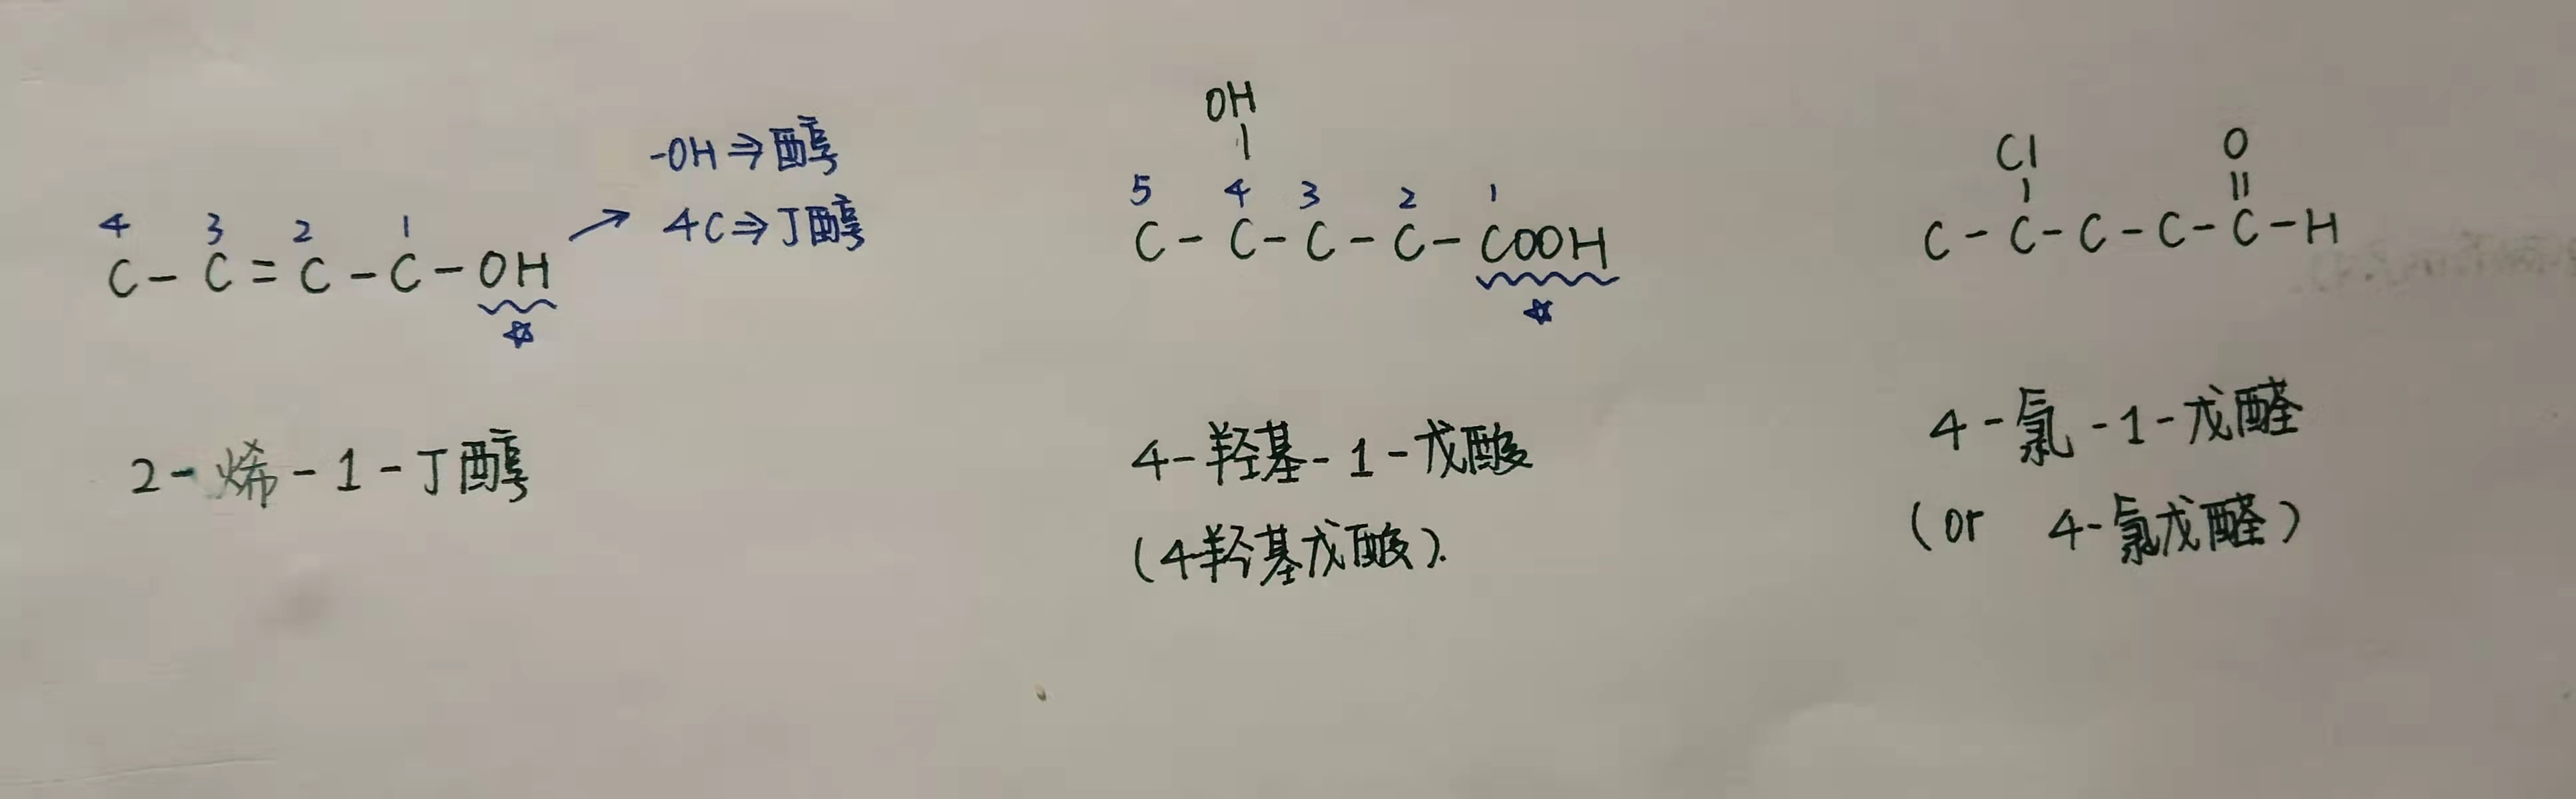 4 3 2 1
C - C = C - C - OH
☆
-OH ⇒ 醇
4C ⇒ 丁醇
2 - 烯 - 1 - 丁醇
OH
5 4 3 2 1
C - C - C - C - COOH
☆
4 - 羟基 - 1 - 戊酸
(4羟基戊酸).
Cl O
C - C - C - C - C - H
4 - 氯 - 1 - 戊醛
(or 4 - 氯戊醛)